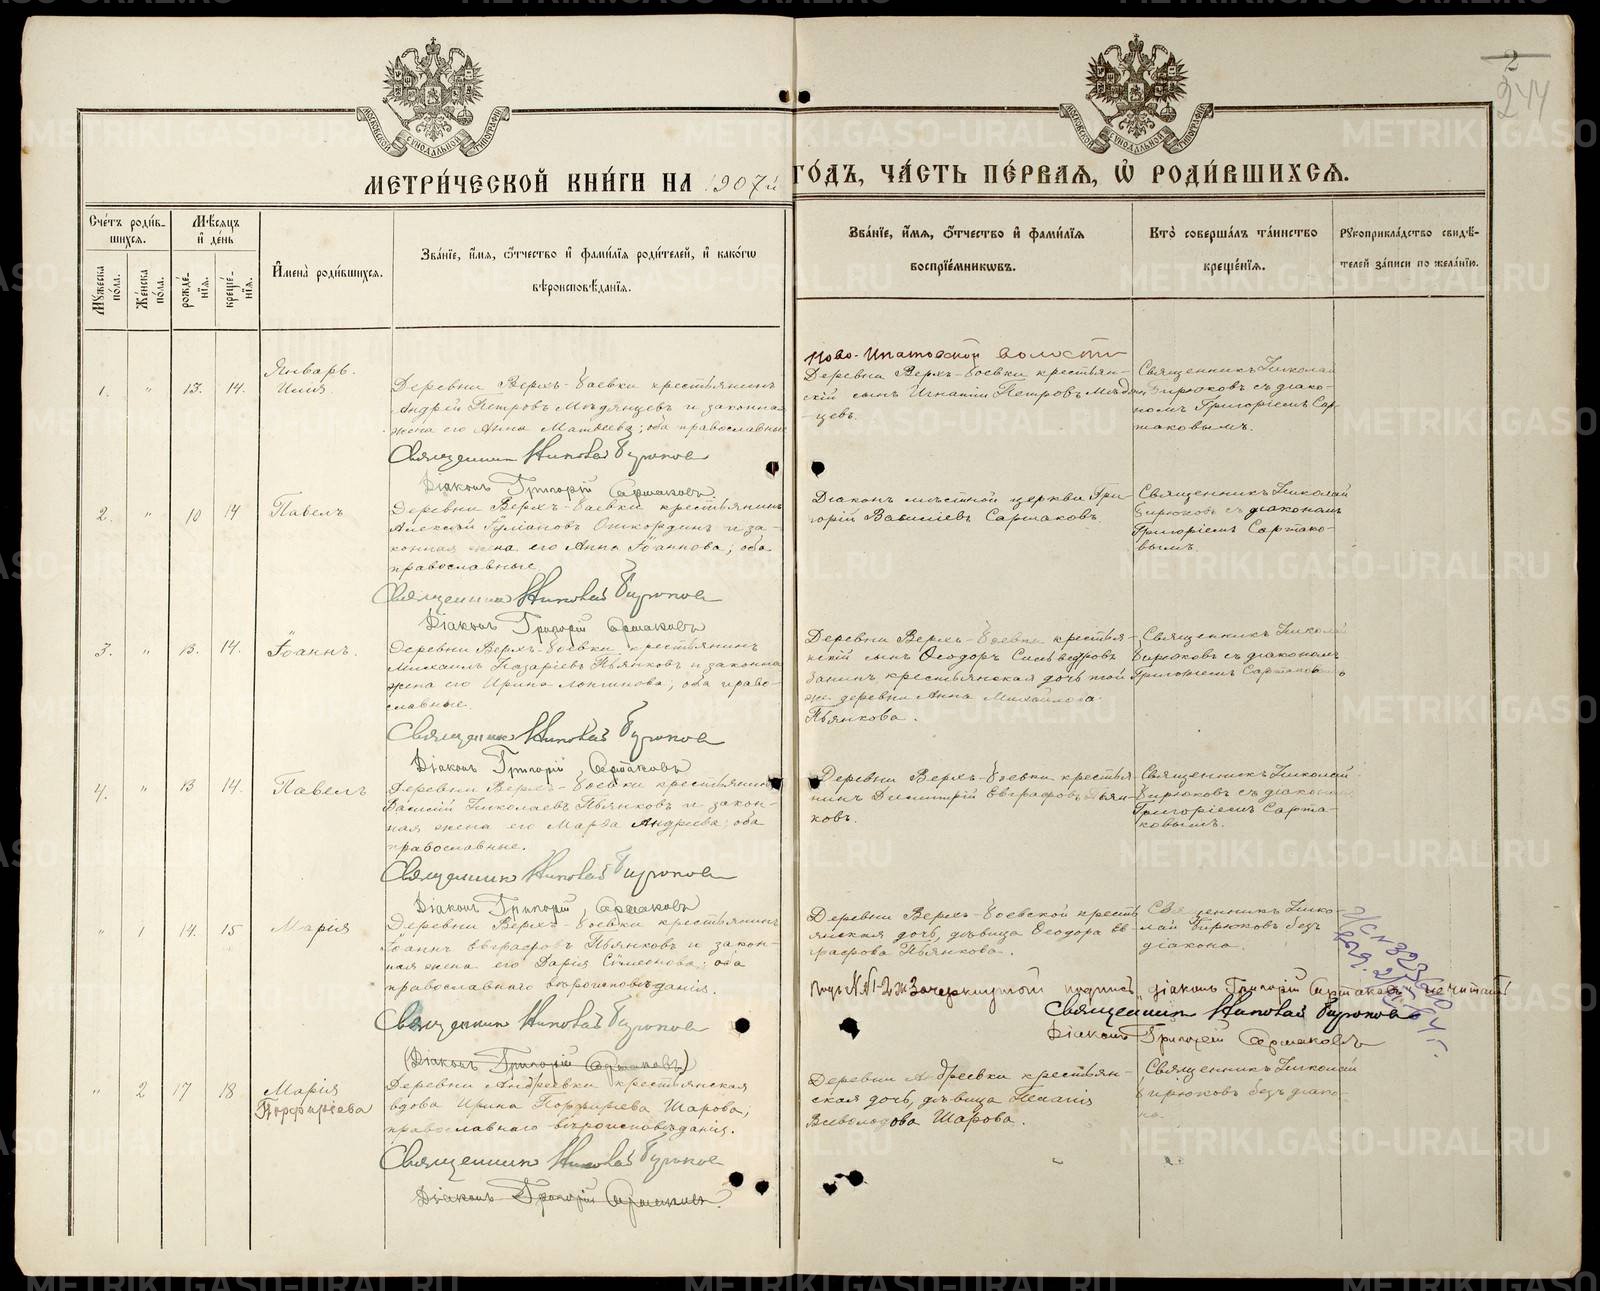 2
244
МОСКОВСКОЙ СѴНОДАЛЬНОЙ ТИПОГРАФІИ
МОСКОВСКОЙ СѴНОДАЛЬНОЙ ТИПОГРАФІИ
МЕТРИ́ЧЕСКОЙ КНИ́ГИ НА 1907й ГО́ДЪ, ЧА́СТЬ ПЕ́РВАѦ, Ѡ҆ РОДИ́ВШИХСѦ.
Сче́тъ роди́в-
шихсѧ.
Мꙋ́жеска по́ла.
Же́нска по́ла.
Мѣ́сѧцъ и҆ де́нь
рожде́-
нїѧ.
креще́-
нїѧ.
И҆мена̀ роди́вшихсѧ.
Зва́нїе, и҆́мѧ, ѻ҆́тчество и҆ фами́лїѧ роди́телей, и҆ како́гѡ
вѣроисповѣ́данїѧ.
Зва́нїе, и҆́мѧ, ѻ҆́тчество и҆ фами́лїѧ
воспрїе́мникѡвъ.
Кто̀ соверша́лъ та́инство
креще́нїѧ.
Рꙋкоприкла́дство свидѣ́-
телей за́писи по жела́нїю.
Январь.
1. " 13. 14. Илія
Деревни Верхъ-Боевки крестьянинъ
Андрей Петровъ Мѣдянцевъ и законная
жена его Анна Матвеева; оба православные
Священникъ Николай Бирюковъ
Діаконъ Григорій Сартаковъ.
Ново-Ипатовской волости
Деревни Верхъ-Боевки крестьян-
скій сынъ Игнатій Петровъ Мѣдян-
цевъ.
Священникъ Николай
Бирюковъ съ діако-
номъ Григоріемъ Сар-
таковымъ.
2. " 10 14 Павелъ
Деревни Верхъ-Боевки крестьянинъ
Алексѣй
законная жена его Анна Іоаннова; оба
православные.
Священникъ Николай Бирюковъ
Діаконъ Григорій Сартаковъ
Діаконъ мѣстной церкви Гри-
горій Василіевъ Сартаковъ.
Священникъ Николай
Бирюковъ съ діакономъ
Григоріемъ Сартако-
вымъ.
3. " 13. 14. Іоаннъ.
Деревни Верхъ-Боевки крестьянинъ
Михаилъ Назаріевъ Пьянковъ и законная
жена его Ирина Логинова; оба право-
славные.
Священникъ Николай Бирюковъ
Діаконъ Григорій Сартаковъ
Деревни Верхъ-Боевки крестья-
нскій сынъ Ѳеодоръ Сильвестровъ
крестьянская дочь той
же деревни Анна Михайлова
Пьянкова.
Священникъ Николай
Бирюковъ съ діакономъ
Григоріемъ Сартаков
4. " 13 14. Павелъ
Деревни Верхъ-Боевки крестьянинъ
Василій Николаевъ Пьянковъ и закон-
ная жена его Марѳа Андреева; оба
православные.
Священникъ Николай Бирюковъ
Діаконъ Григорій Сартаковъ
Деревни Верхъ-Боевки крестья-
нинъ Димитрій Евграфовъ Пьян-
ковъ.
Священникъ Николай
Бирюковъ съ діакономъ
Григоріемъ Сарта-
ковымъ.
" 1 14. 15 Марія
Деревни Верхъ-Боевки крестьянинъ
Іоаннъ Евграфовъ Пьянковъ и закон-
ная жена его Дарія Сѵмеонова; оба
православнаго вѣроисповѣданія.
Священникъ Николай Бирюковъ
(Діаконъ Григорій Сартаковъ)
Деревни Верхъ-Боевской кресть-
янская дочь, дѣвица Ѳеодора Ев-
графова Пьянкова.
Священникъ Нико-
лай Бирюковъ безъ
діакона.
№№ 1-2 ж Зачеркнутой подпись „діаконъ Григорій Сартаковъ" не читать
Священникъ Николай Бирюковъ
Діаконъ Григорій Сартаковъ
" 2 17 18 Марія
Порфиріева
Деревни Андреевки крестьянская
вдова Ирина Порфиріева Шарова,
православнаго вѣроисповѣданія.
Священникъ Николай Бирюковъ
Діаконъ Григорій Сартаковъ.
Деревни Андреевки крестьян-
ская дочь, дѣвица Пелагія
Всеволодова Шарова.
Священникъ Николай
Бирюковъ безъ діако-
на.
METRIKI.GASO-URAL.RU